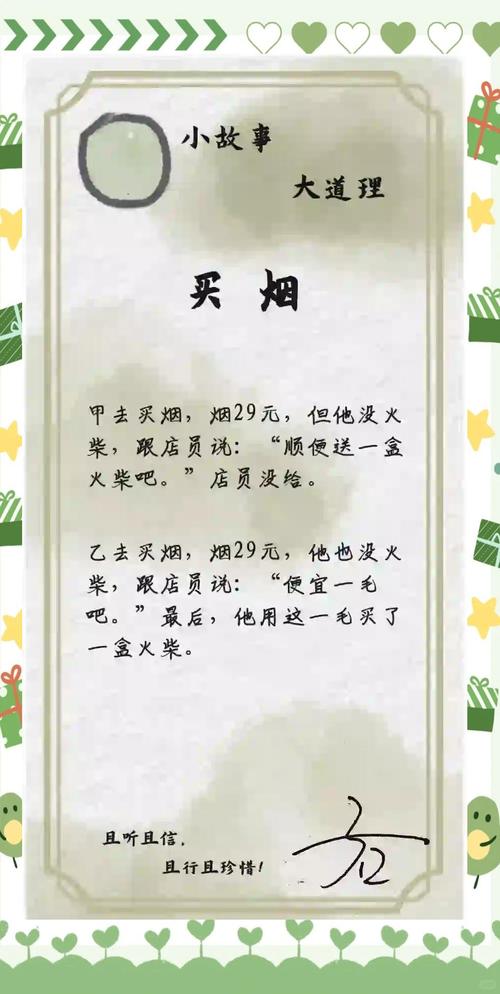 小故事
大道理
买 烟
甲去买烟，烟29元，但他没火
柴，跟店员说：“顺便送一盒
火柴吧。”店员没给。
乙去买烟，烟29元，他也没火
柴，跟店员说：“便宜一毛
吧。”最后，他用这一毛买了
一盒火柴。
且听且信，
且行且珍惜！